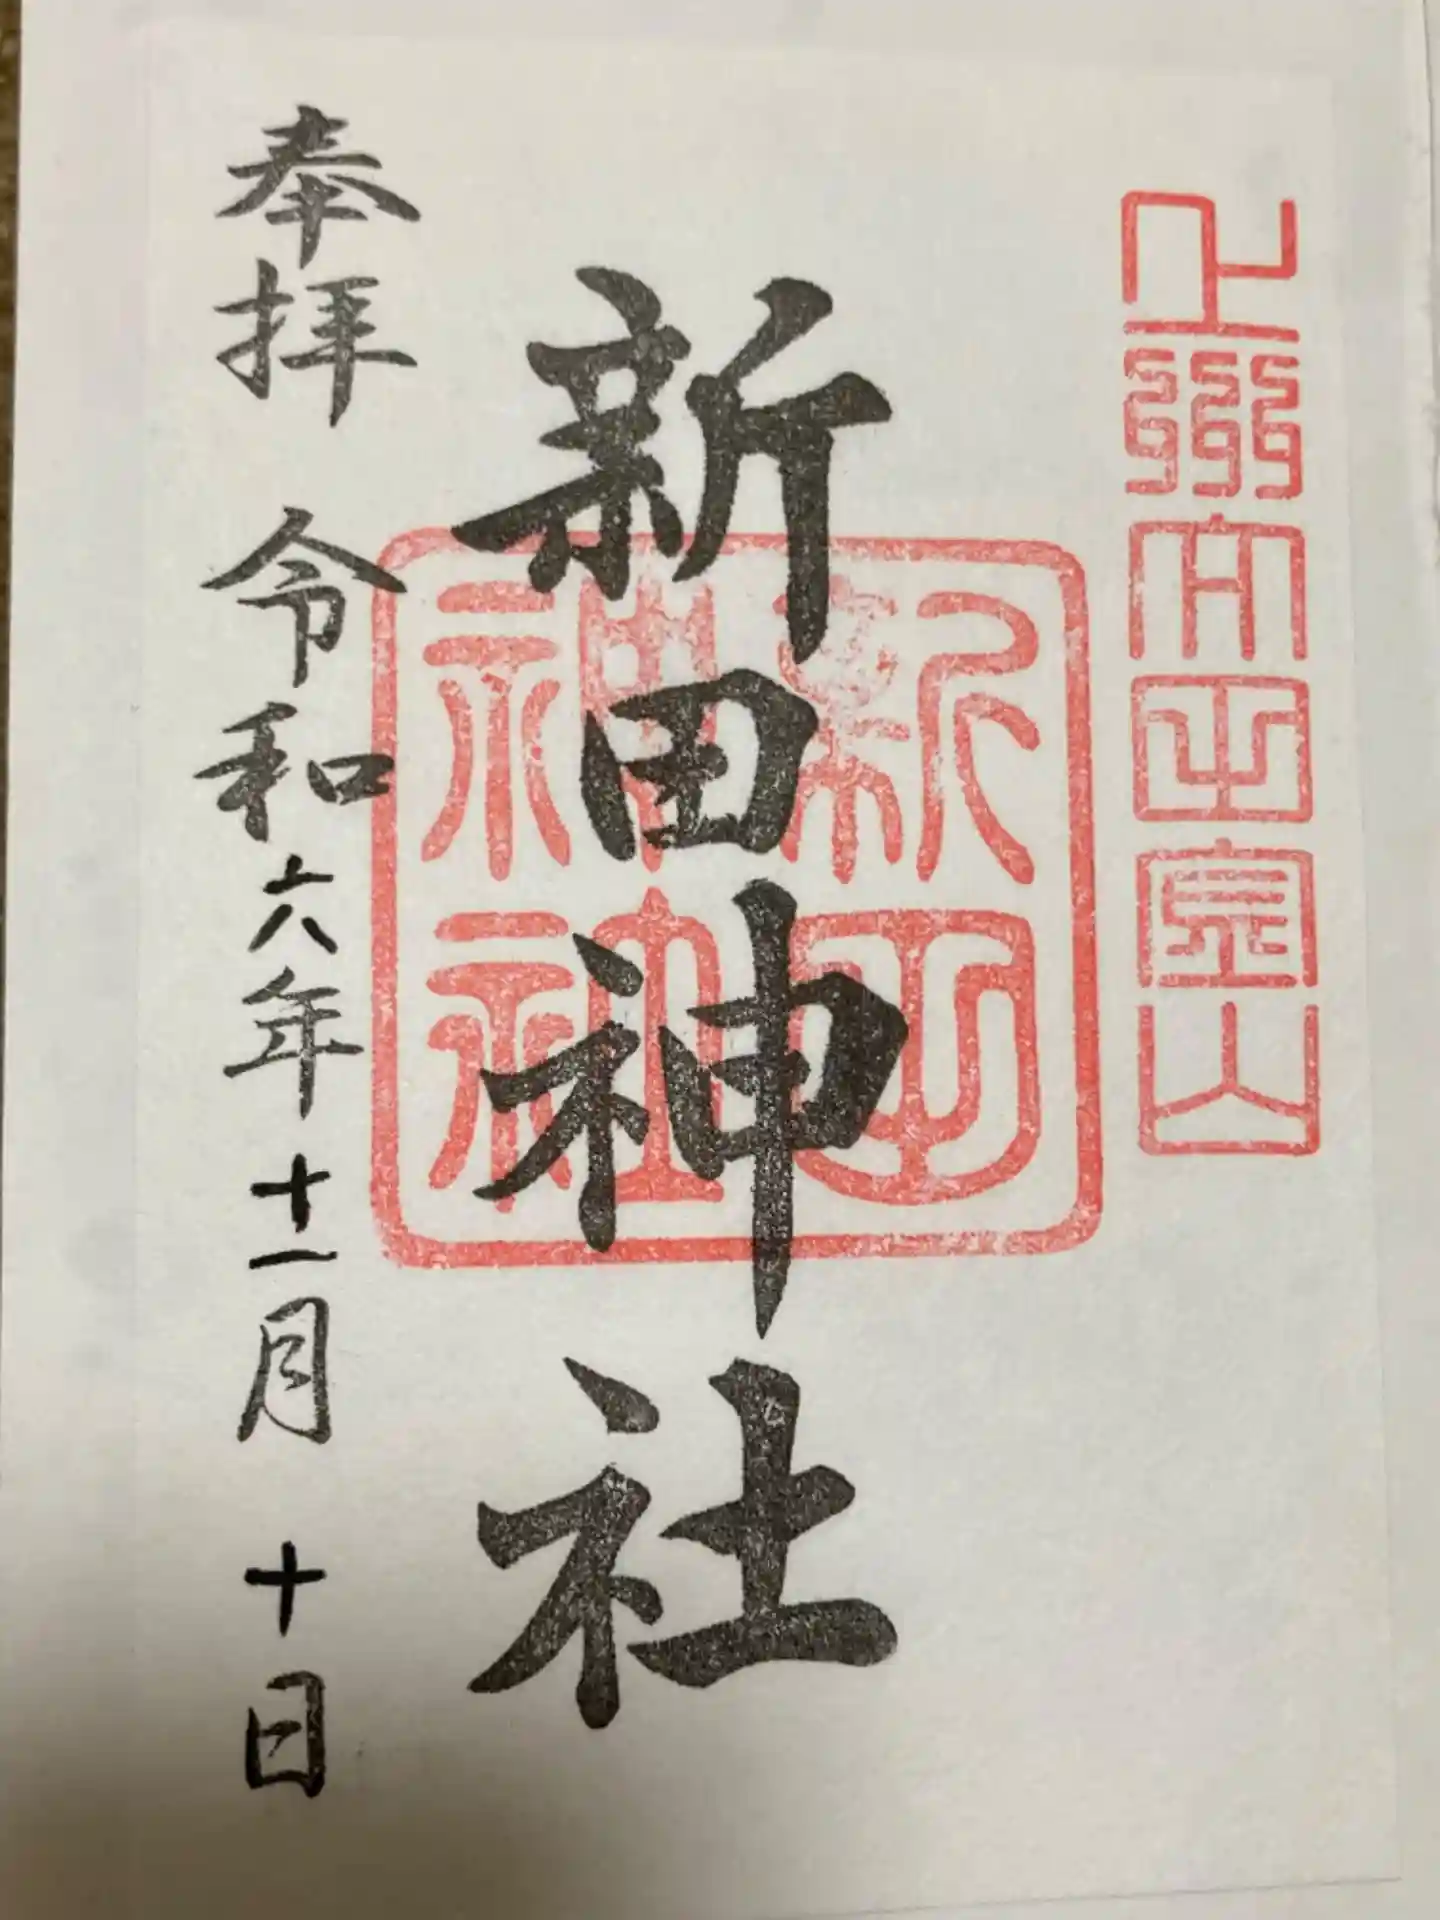 上州太田金山
新田
神社
新田神社
奉拝 令和六年十一月十日